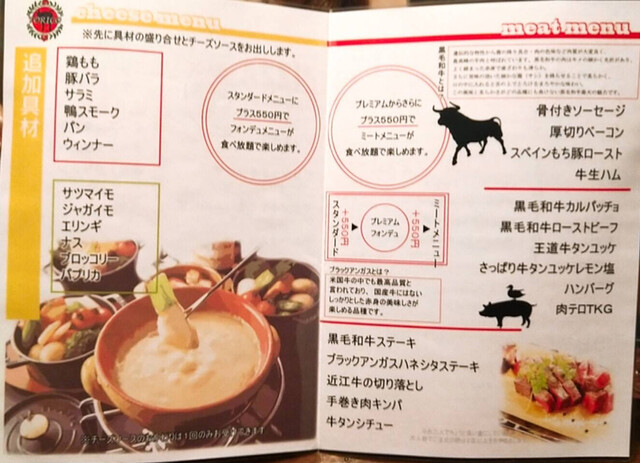 ORIO
cheese menu
※先に具材の盛り合せとチーズソースをお出しします。
追加具材
鶏もも
豚バラ
サラミ
鴨スモーク
パン
ウィンナー
サツマイモ
ジャガイモ
エリンギ
ナス
ブロッコリー
パプリカ
スタンダードメニューに
プラス550円で
フォンデュメニューが
食べ放題で楽しめます。
meat menu
黒毛和牛とは?
プレミアムからさらに
プラス550円で
ミートメニューが
食べ放題で楽しめます。
骨付きソーセージ
厚切りベーコン
スペインもち豚ロースト
牛生ハム
スタンダード
+550円
プレミアム
フォンデュ
+550円
ミートメニュー
黒毛和牛カルパッチョ
黒毛和牛ローストビーフ
王道牛タンユッケ
さっぱり牛タンユッケレモン塩
ハンバーグ
肉テロTKG
ブラックアンガスとは?
米国牛の中でも最高品質と
言われており、国産牛にはない
しっかりとした赤身の美味しさが
楽しめる品種です。
黒毛和牛ステーキ
ブラックアンガスハネシタステーキ
近江牛の切り落とし
手巻き肉キンパ
牛タンシチュー